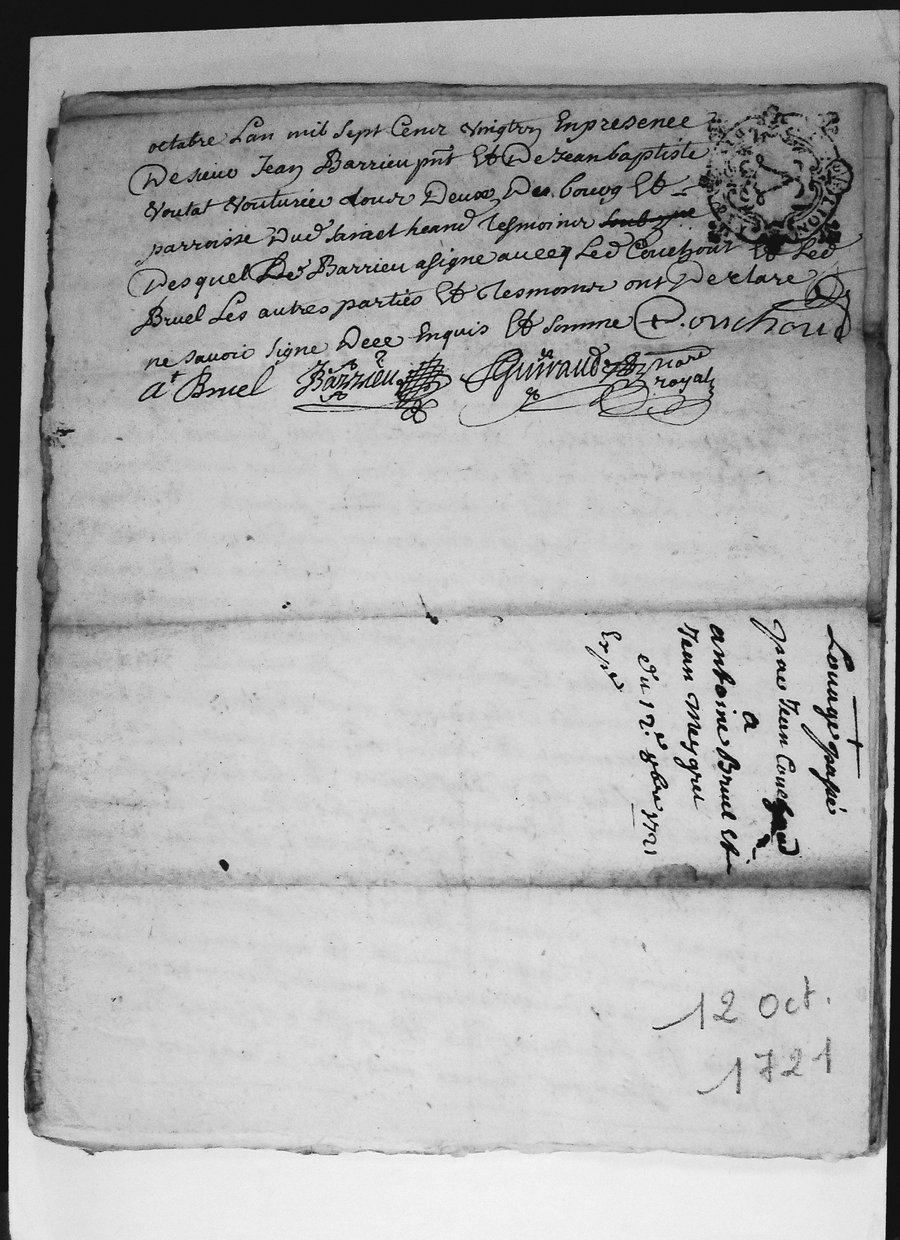 octobre Lan mil sept Cent vingt un En presence
De sieur Jean Barrieu pnt Et De Jean baptiste
Voutat Voiturier tour Deux Des. bourg Et
parroisse Dud saint heand Tesmoins
Desquel Led Barrieu a signe avecq Led Couchout Et Led
Bruel Les autres parties Et Tesmoins ont Declare
ne savoir signe Dece Enquis Et somme P. ouchoud
at Bruel Barrieu Guiraud nore
royal
LION
Louage passé
par Jean Couchoud
a
antoine Bruel Et
Jean Meygret
du 12e 8bre 1721
Expé
12 Oct.
1721